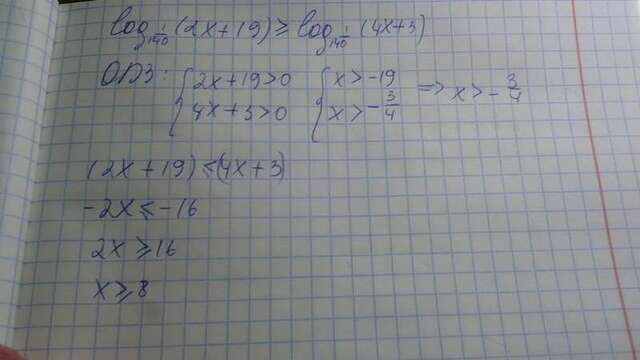 log_{1/140} (2x+19) ≥ log_{1/140} (4x+3)
ОДЗ: { 2x+19>0 { x>-19 => x>-3/4
4x+3>0 x>-3/4
(2x+19)≤(4x+3)
-2x≤-16
2x≥16
x≥8